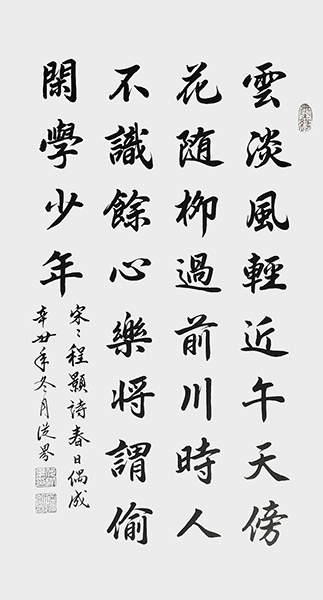 雲淡風輕近午天傍
花随柳過前川時人
不識餘心樂將謂偷
閑學少年
宋：程顥詩春日偶成
辛丑年冬月